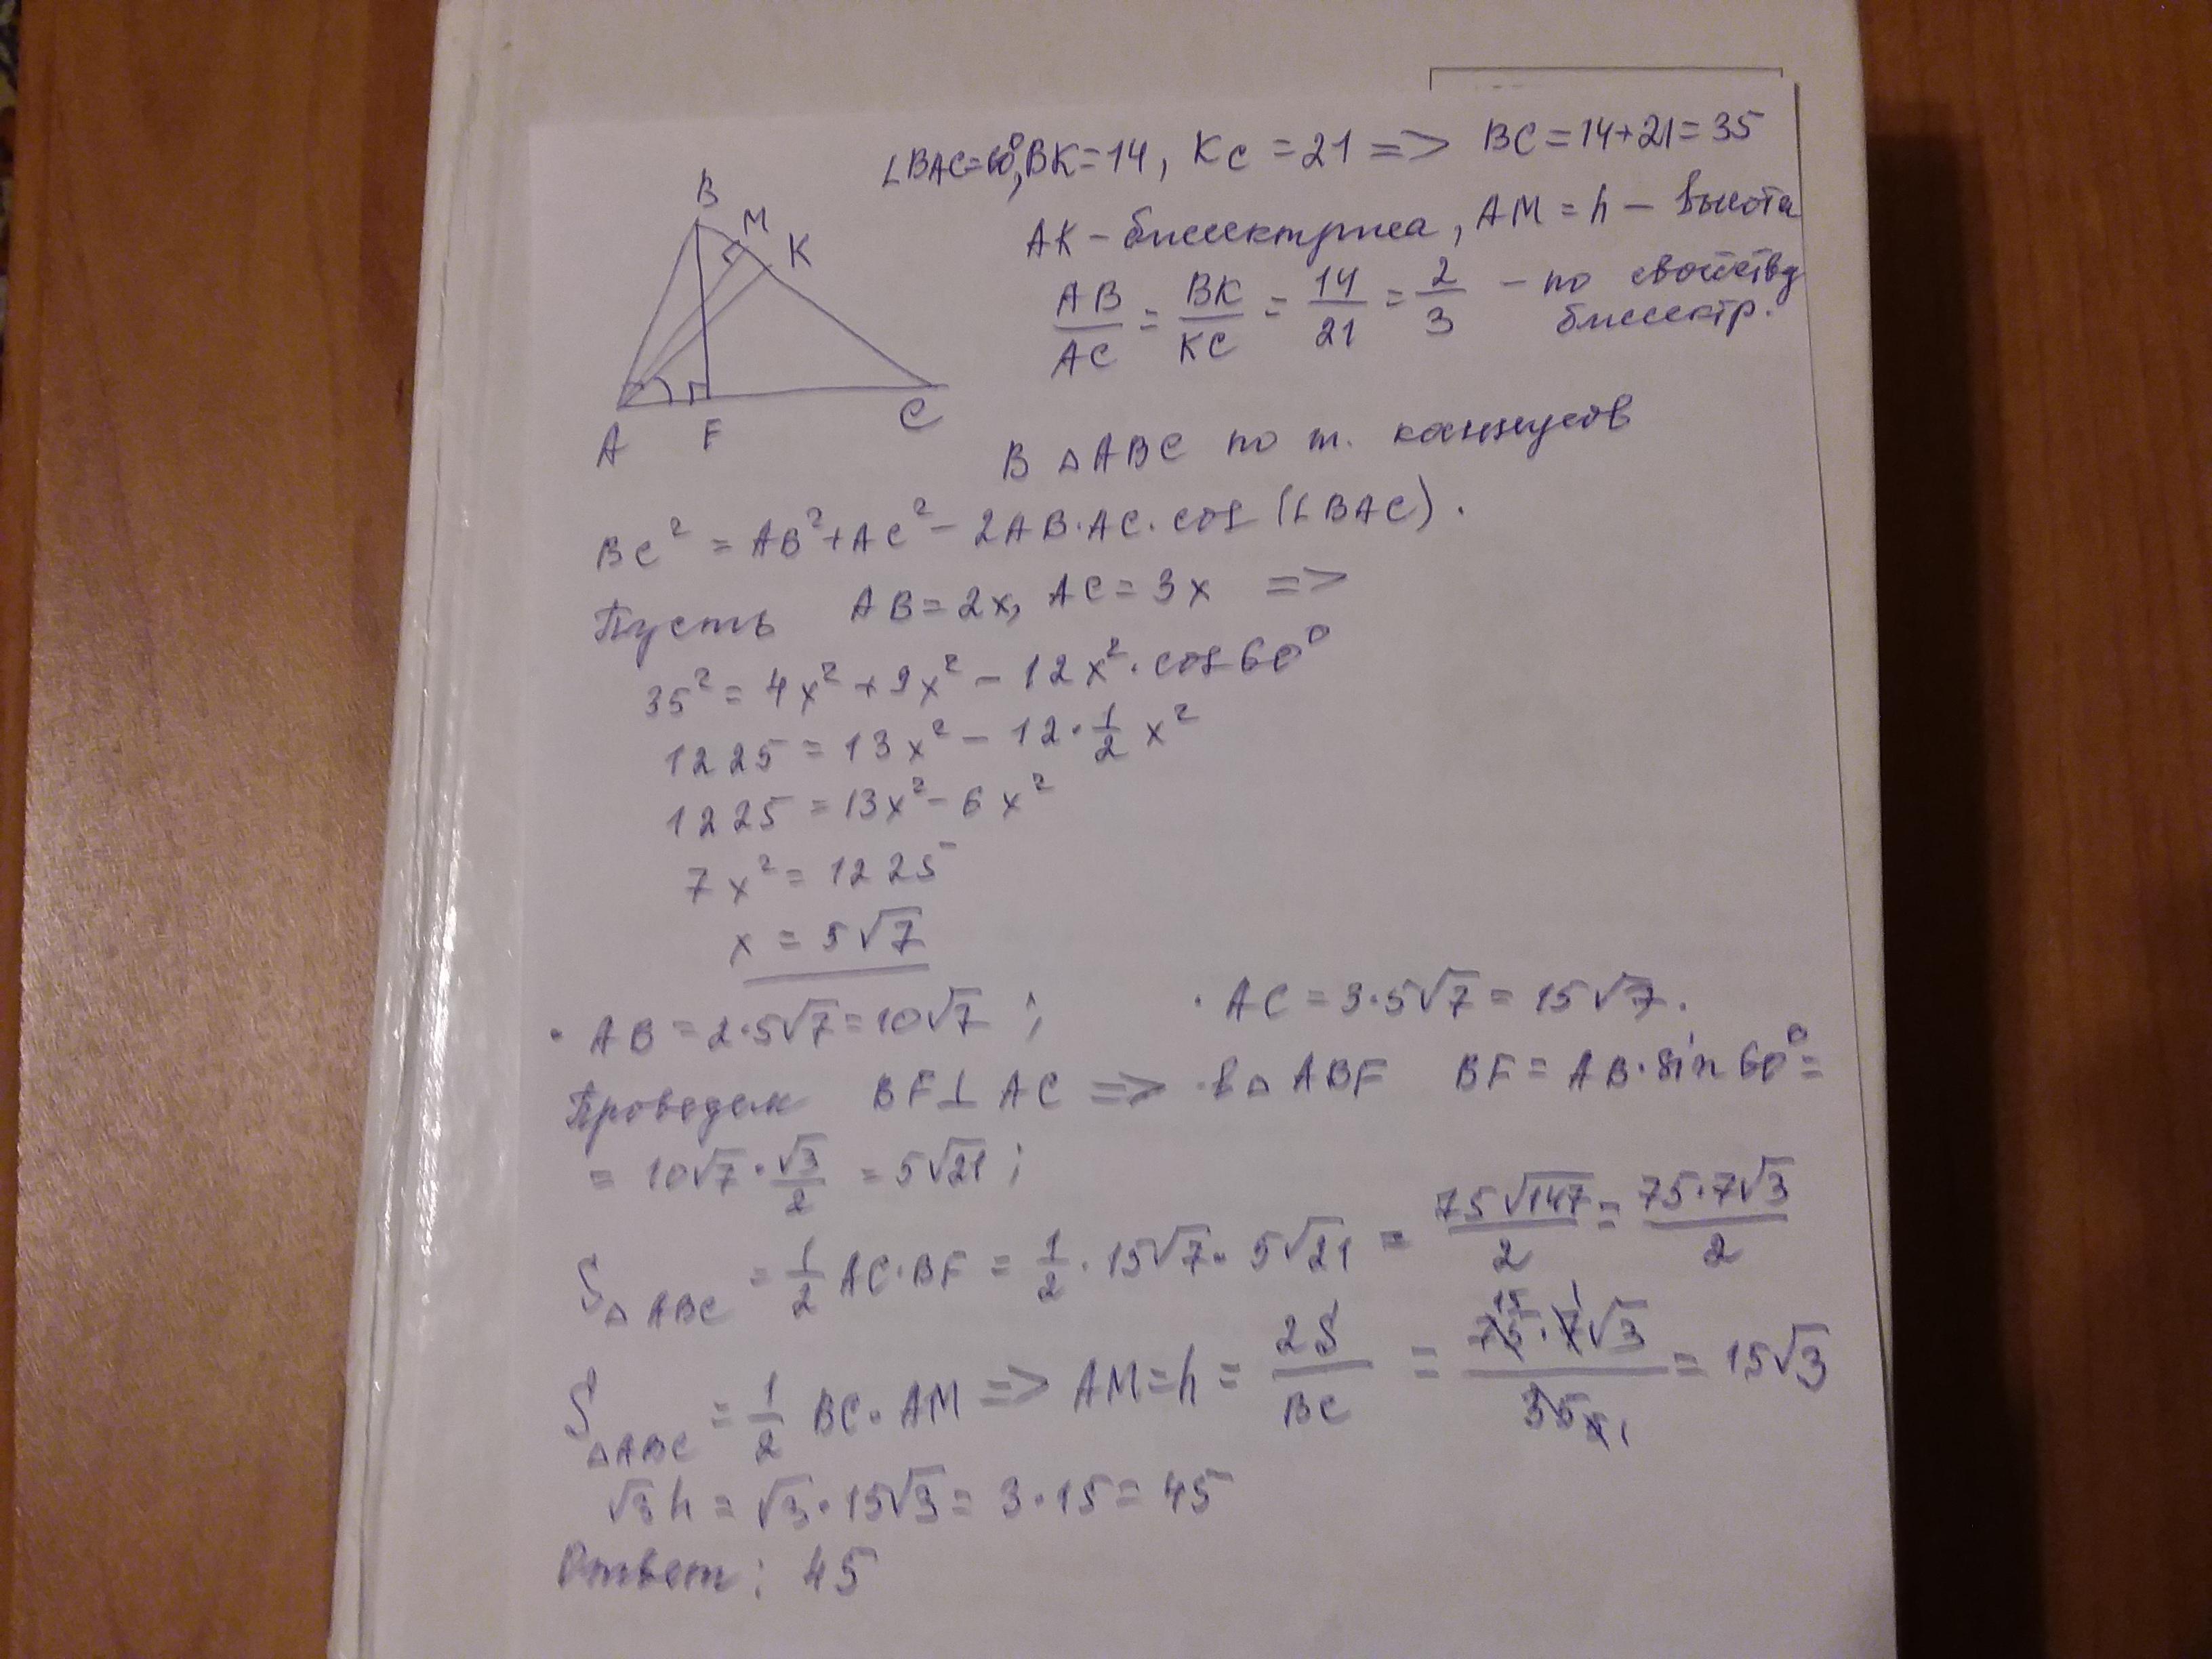 ∠BAC=60°, BK=14, KC=21 => BC=14+21=35
AK - биссектриса, AM=h - высота
AB/AC = BK/KC = 14/21 = 2/3 - по свойству
биссектр.
B
M
K
A
F
C
В △ABC по т. косинусов
BC² = AB²+AC²-2AB·AC·cos(∠BAC).
Пусть AB=2x, AC=3x =>
35²=4x²+9x²-12x²·cos60°
1225=13x²-12·1/2 x²
1225=13x²-6x²
7x²=1225
x=5√7
· AB=2·5√7=10√7; · AC=3·5√7=15√7.
Проведем BF⊥AC => в △ABF BF=AB·sin60°=
=10√7·√3/2=5√21;
S△ABC=1/2 AC·BF=1/2·15√7·5√21=75√147/2=75·7√3/2
S△ABC=1/2 BC·AM => AM=h=2S/BC=75·7√3/35=15√3
15
1
5
1
√3h=√3·15√3=3·15=45
Ответ: 45